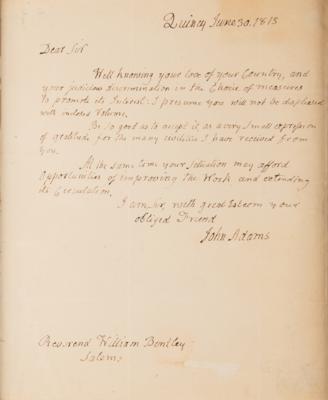 Quincy June 30. 1813
Dear Sir
Well knowing your love of your Country, and
your judicious discrimination in the Choice of measures
to promote its Interest: I presume you will not be displeased
with inclosed Volume.
Be so good as to accept it, as a very small expression
of gratitude for the many civilities I have received from
you.
At the same time your situation may afford
Opportunities of improving the Work and extending
its Circulation.
I am, Sir, with great Esteem your
obliged Friend
John Adams
Reverend William Bentley
Salem